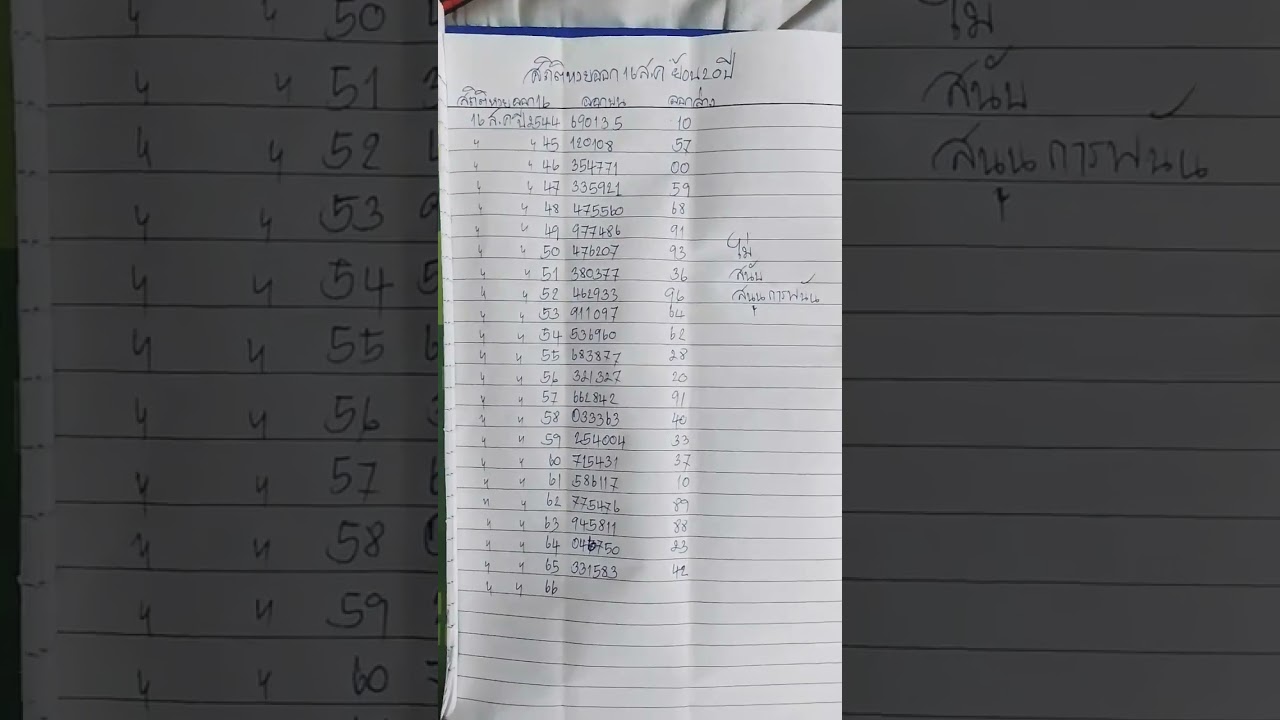 สถิติหวยออก 16 ส.ค ย้อน 20 ปี
สถิติหวยออก16 ออกบน ออกล่าง
16 ส.ค ปี 2544 690135 10
" " 45 120108 57
" " 46 354771 00
" " 47 335921 59
" " 48 475560 68
" " 49 977486 91
" " 50 476207 93
" " 51 380377 36
" " 52 462933 96
" " 53 911097 64
" " 54 536960 62
" " 55 683877 28
" " 56 321327 20
" " 57 662842 91
" " 58 033363 40
" " 59 254004 33
" " 60 715431 37
" " 61 586117 10
" " 62 775476 89
" " 63 945811 88
" " 64 046750 23
" " 65 331583 42
" " 66
ไม่
สนับ
สนุนการพนัน